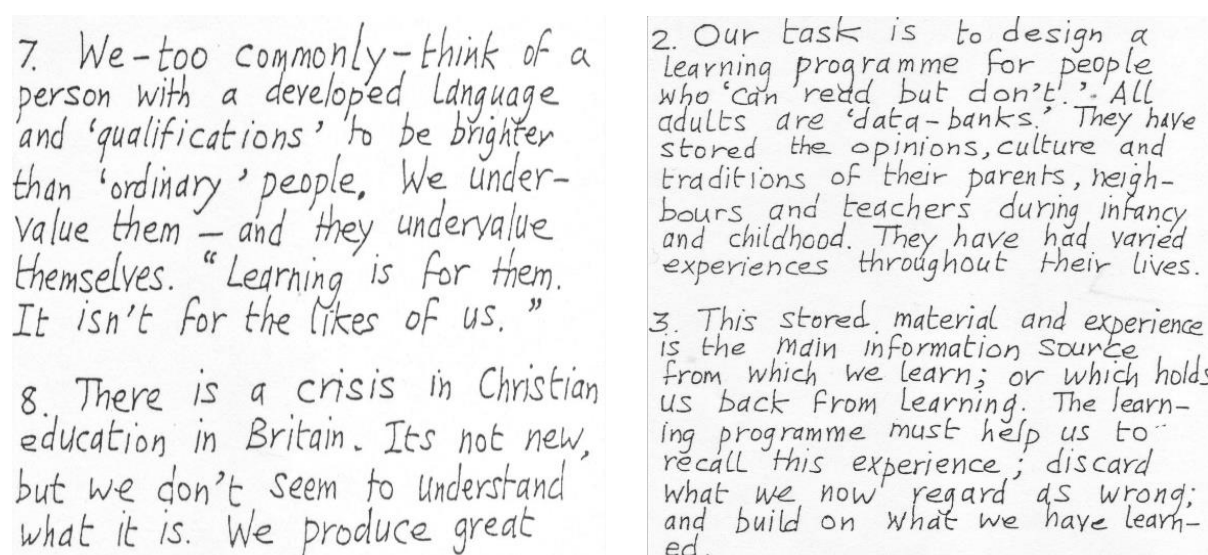 7. We-too commonly-think of a
person with a developed language
and 'qualifications' to be brighter
than 'ordinary' people. We under-
value them - and they undervalue
themselves. "Learning is for them.
It isn't for the likes of us."
8. There is a crisis in Christian
education in Britain. Its not new,
but we don't seem to understand
what it is. We produce great
2. Our task is to design a
learning programme for people
who 'can read but don't'. All
adults are 'data-banks.' They have
stored the opinions, culture and
traditions of their parents, neigh-
bours and teachers during infancy
and childhood. They have had varied
experiences throughout their lives.
3. This stored material and experience
is the main information source
from which we learn; or which holds
us back from learning. The learn-
ing programme must help us to
recall this experience; discard
what we now regard as wrong;
and build on what we have learn-
ed.